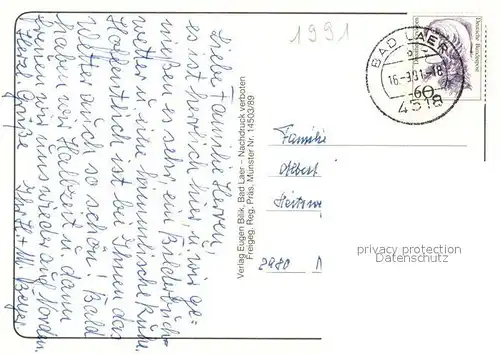 1991
Liebe Familie Herren,
es ist herrlich hier, u. wir ge-
nießen es sehr, ein Bilderbuch-
wetter u. eine himmlische Ruhe.
Hoffentlich ist bei Ihnen das
Wetter auch so schön! Bald
haben wir Halbzeit u. dann
freuen wir uns wieder auf Norden.
Herzl. Grüße Ihr H. + M. Beyer
Verlag Eugen Bilik, Bad Laer - Nachdruck verboten
Freigeg. Reg. Präs. Münster Nr. 14503/89
BAD LAER
16.-9.91-18
4518
60
Deutsche Bundespost
Familie
Albert
2980
privacy protection
Datenschutz